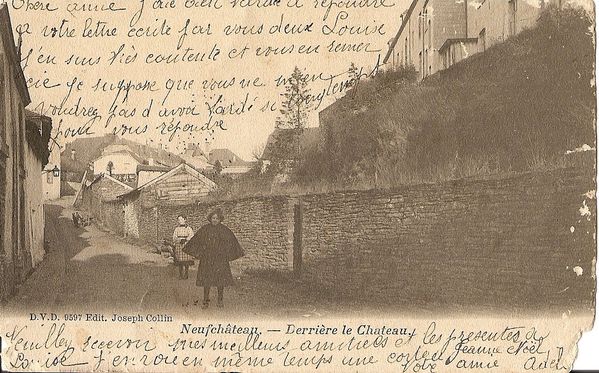 Chère anne j'ai bien tardé à répondre
a votre lettre écrite par vous deux Louise
j'en suis très contente et vous en remer
cie je suppose que vous ne m'en
voudrez pas d'avoir tardé si longtemps
pour vous répondre
D.V.D. 9597 Edit. Joseph Collin
Neufchâteau. — Derrière le Chateau.
Veuillez recevoir mes meilleurs amitiés et les presentes de
Louise j'envoie en même temps une Jeanne Noël
Votre amie